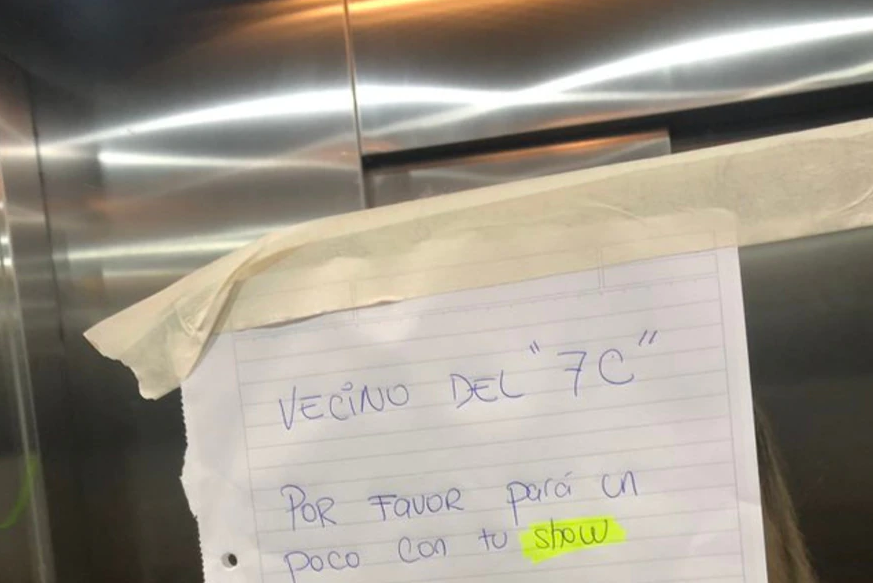 VECINO DEL "7C"
POR FAVOR pará un
poco con tu show